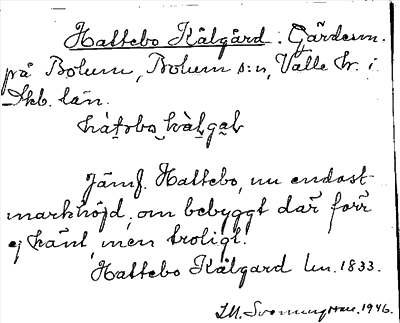 Hattebo Kålgård. Gärdesn.
på Bolum, Bolum s:n, Valle hr. i
Skb. län.
Jämf. Hattebo, nu endast
markhöjd, om bebyggt där förr
ej känt, men troligt.
Hattebo Kålgard lm. 1833.
1946.